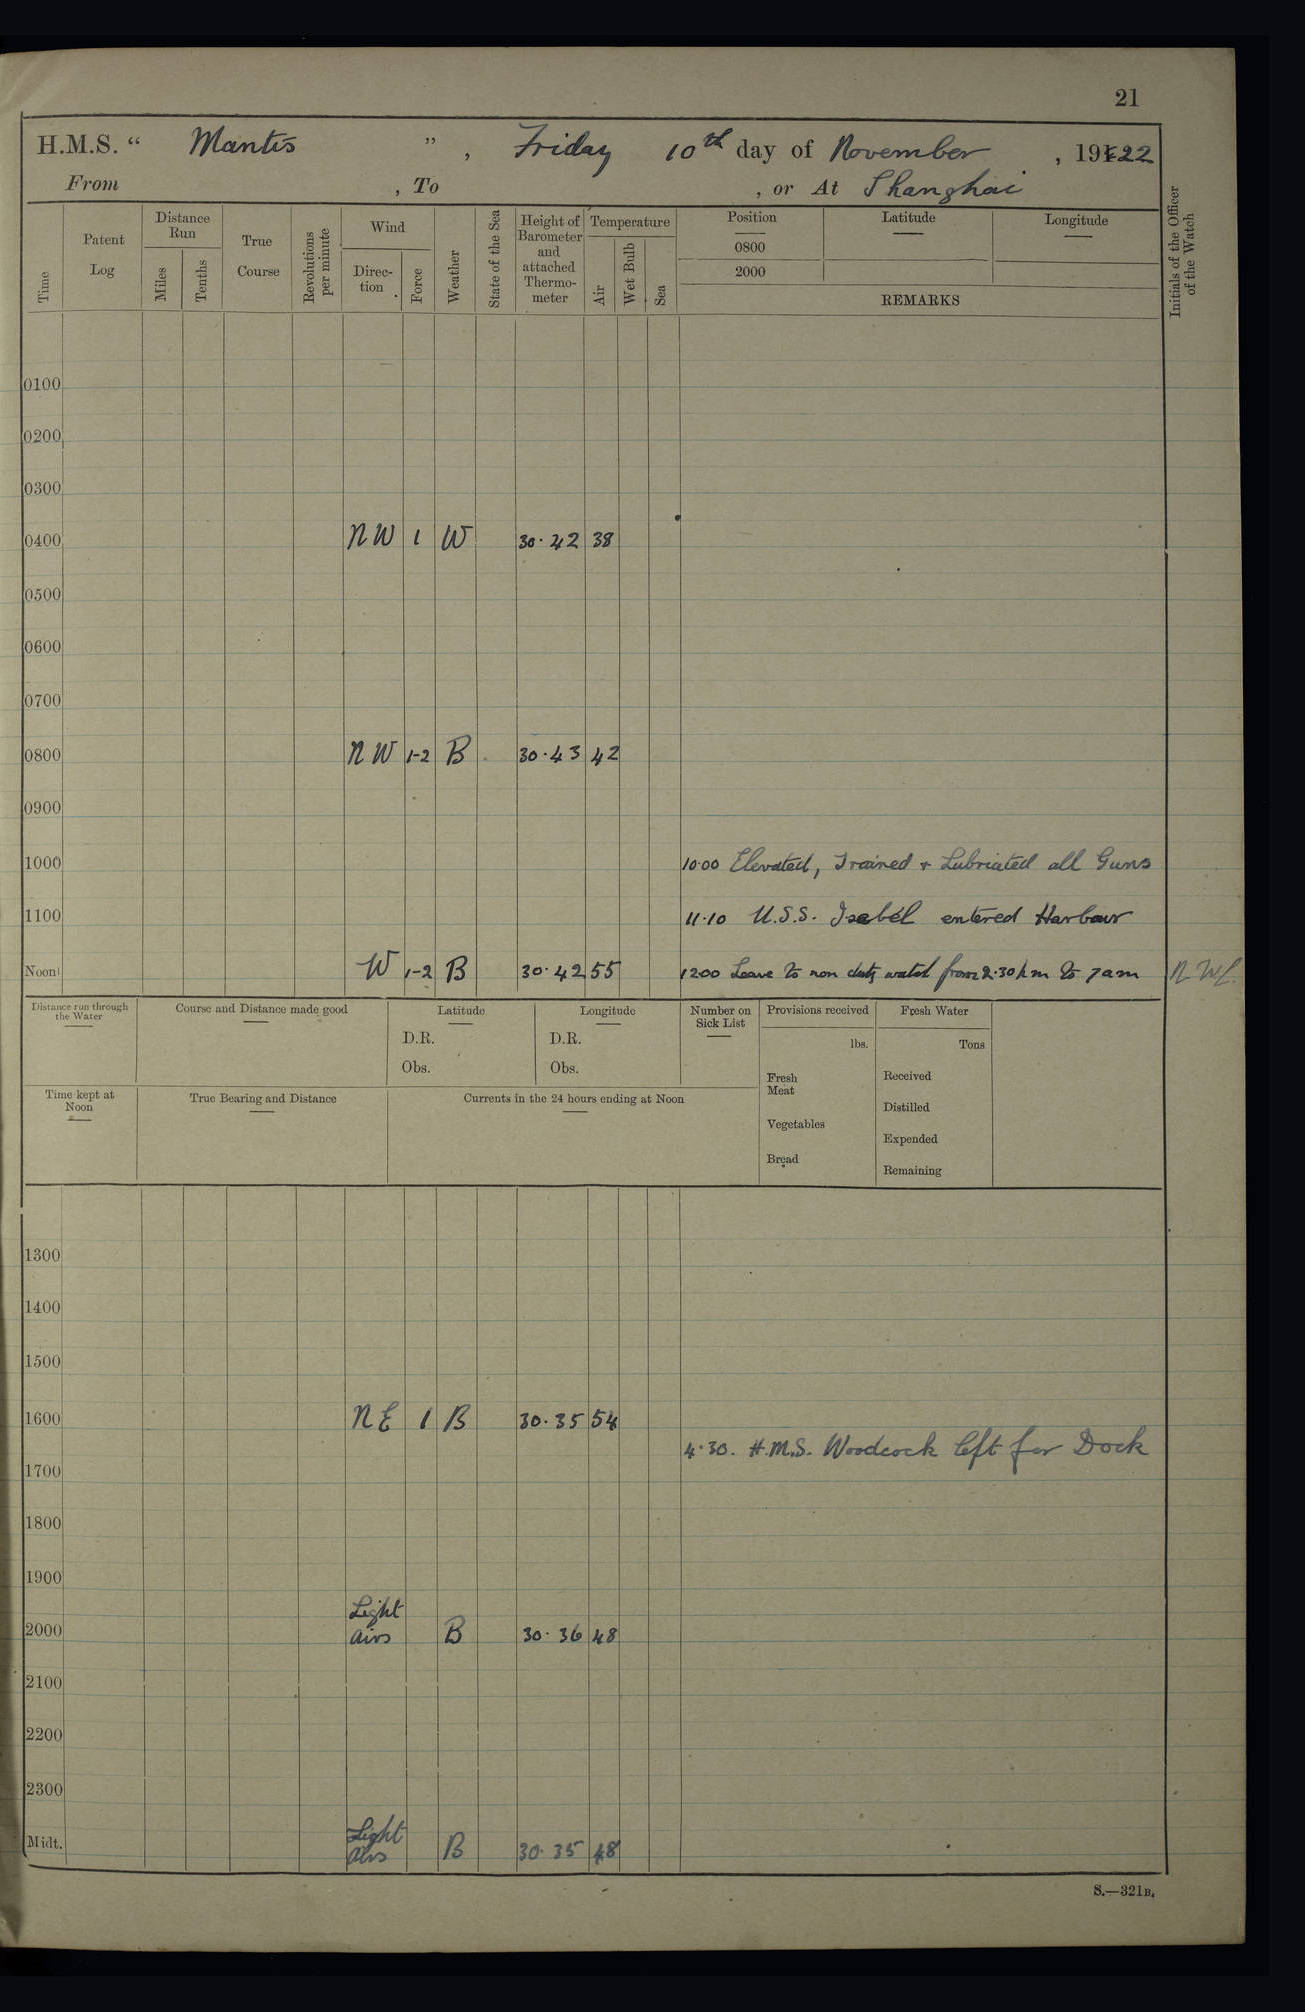 21
H.M.S. “ Mantis ” , Friday 10th day of November , 1922
From , To , or At Shanghai
Time
Patent Log
Distance Run
Miles
Tenths
True Course
Revolutions per minute
Wind
Direc- tion
Force
Weather
State of the Sea
Height of Barometer and attached Thermo- meter
Temperature
Air
Wet Bulb
Sea
Position Latitude Longitude
0800
2000
REMARKS
Initials of the Officer of the Watch
0100
0200
0300
0400 NW 1 W 30.42 38
0500
0600
0700
0800 NW 1-2 B 30.43 42
0900
1000 10.00 Elevated, Trained + Lubriated all Guns
1100 11.10 U.S.S. Isabél entered Harbour
Noon W 1-2 B 30.42 55 1200 Leave to non duty watch from 2.30 pm to 7 am
Distance run through the Water
Course and Distance made good
Latitude
D.R.
Obs.
Longitude
D.R.
Obs.
Number on Sick List
Provisions received
lbs.
Fresh Meat
Vegetables
Bread
Fresh Water
Tons
Received
Distilled
Expended
Remaining
Time kept at Noon
True Bearing and Distance
Currents in the 24 hours ending at Noon
1300
1400
1500
1600 NE 1 B 30.35 54
4.30. H.M.S. Woodcock left for Dock
1700
1800
1900
2000 Light airs B 30.36 48
2100
2200
2300
Midt. Light airs B 30.35 48
S.—321B.